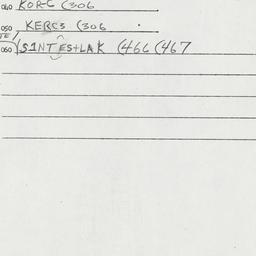 040 KORG (306
050 KERES (306
060 SINTESTLAK (466 (467